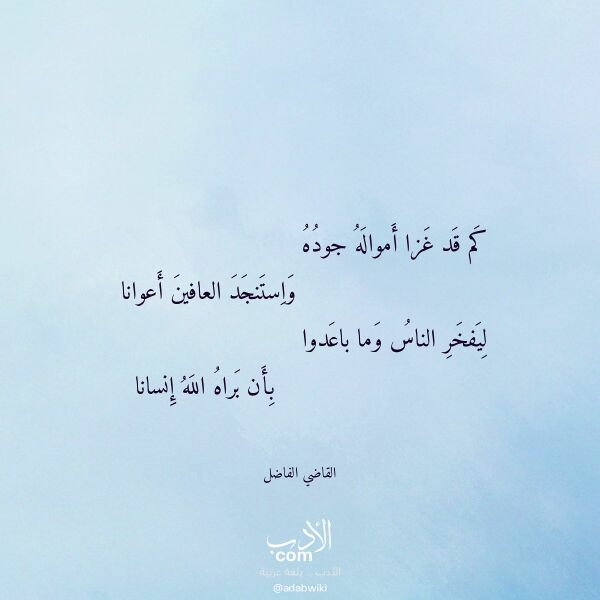 كَم قَد غَزا أَموالَهُ جودُهُ
وَاِستَنجَدَ العافينَ أَعوانا
لِيَفخَرِ الناسُ وَما باعَدوا
بِأَن بَراهُ اللَهُ إِنسانا
القاضي الفاضل
الأدب
com
الأدب .. بلغة عربية
@adabwiki